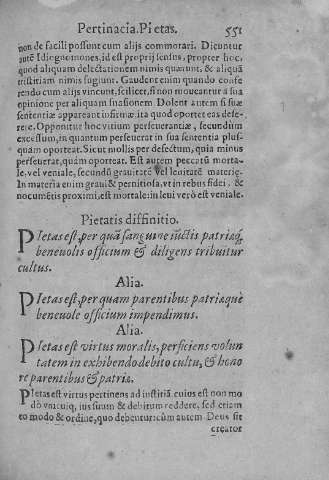 Pertinacia. Pietas. 551
non de facili possunt cum alijs commorari. Dicuntur
autē Idiognomones, id est proprij sensus, propter hoc,
quod aliquam delectationem nimis quærunt, & aliquā
tristitiam nimis fugiunt. Gaudent enim quando confe
rendo cum alijs vincunt, scilicet, si non moueantur à sua
opinione per aliquam suasionem. Dolent autem si suæ
sententiæ appareant infirmæ, ita quod oporteat eas dese-
rere. Opponitur hoc vitium perseuerantiæ, secundum
excessum, in quantum perseuerat in sua sententia plus-
quàm oporteat. Sicut mollis per defectum, quia minus
perseuerat, quàm oporteat. Est autem peccatū morta-
le, vel veniale, secundū grauitatē vel leuitatē materię.
In materia enim graui & pernitiosa, vt in rebus fidei, &
nocumētis proximi, est mortale: in leui verò est veniale.
Pietatis diffinitio.
PIetas est, per quā sanguine iūctis patriæq́;
beneuolis officium & diligens tribuitur
cultus.
Alia.
PIetas est, per quam parentibus patriæquè
beneuole officium impendimus.
Alia.
PIetas est virtus moralis, perficiens volun
tatem in exhibendo debito cultu, & hono
re parentibus & patriæ.
PIetas est virtus pertinens ad iustitiā, cuius est non mo
dò vnicuiq; ius suum & debitum reddere, sed etiam
eo modo & ordine, quo debentur: cùm autem Deus sit
creator